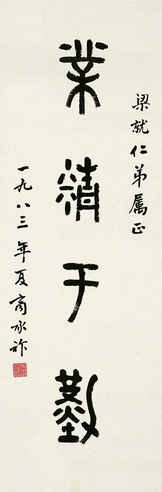 梁就仁弟属正
業精于勤
一九八三年夏商承祚